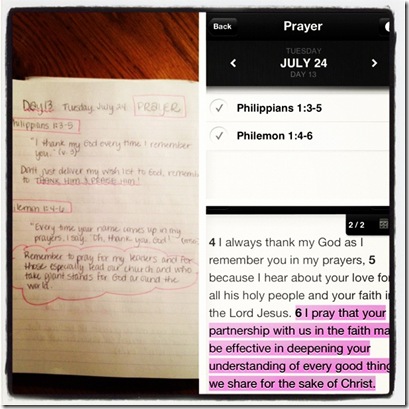 Day 13 Tuesday, July 24 PRAYER
Philippians 1:3-5
"I thank my God every time I remember
you." (v. 3)
Don't just deliver my wish list to God, remember
to THANK HIM & PRAISE HIM!
ilemon 1:4-6
"Every time your name comes up in my
prayers, I say, 'Oh, thank you, God!'
Remember to pray for my leaders and for
those especially lead our church and who
take giant stands for God around the
world.
Back
Prayer
TUESDAY
JULY 24
DAY 13
Philippians 1:3-5
Philemon 1:4-6
2 / 2
4 I always thank my God as I
remember you in my prayers, 5
because I hear about your love for
all his holy people and your faith in
the Lord Jesus. 6 I pray that your
partnership with us in the faith ma
be effective in deepening your
understanding of every good thing
we share for the sake of Christ.